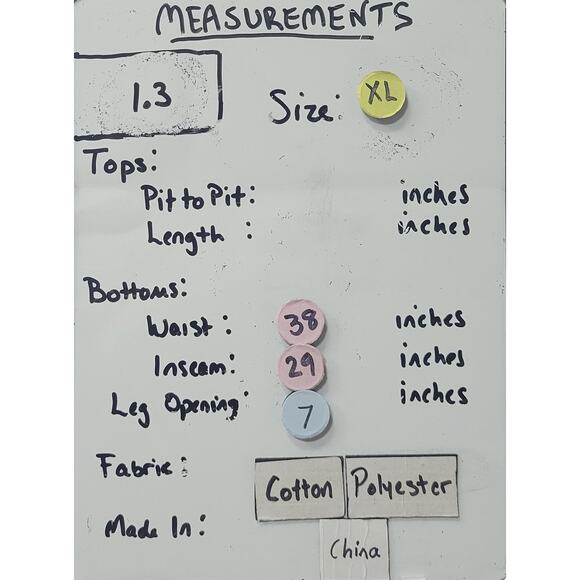 MEASUREMENTS
1.3
Size: XL
Tops:
Pit to Pit: inches
Length : inches
Bottoms:
Waist : 38 inches
Inseam: 29 inches
Leg Opening: 7 inches
Fabric : Cotton Polyester
Made In: China